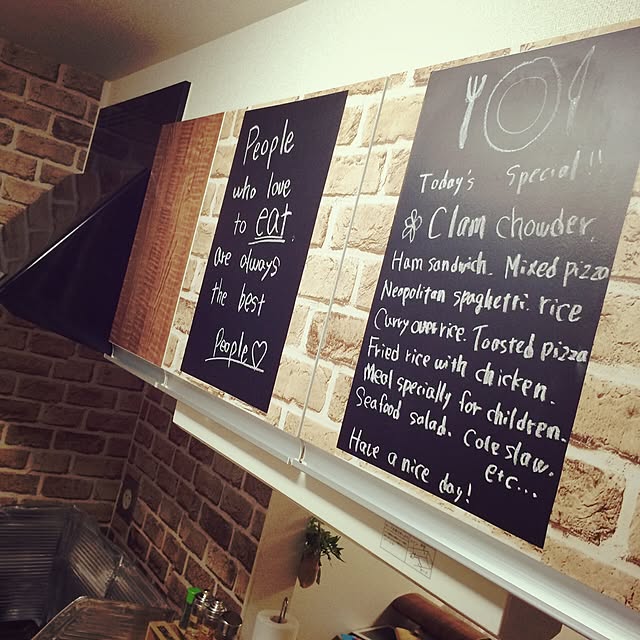 People
who love
to eat
are always
the best
People♡
Today's Special!!
Clam chowder.
Ham sandwich. Mixed pizza
Neapolitan spaghetti. rice
Curry over rice. Toasted pizza
Fried rice with chicken.
Meal specially for children.
Seafood salad. Cole slaw.
etc...
Have a nice day!